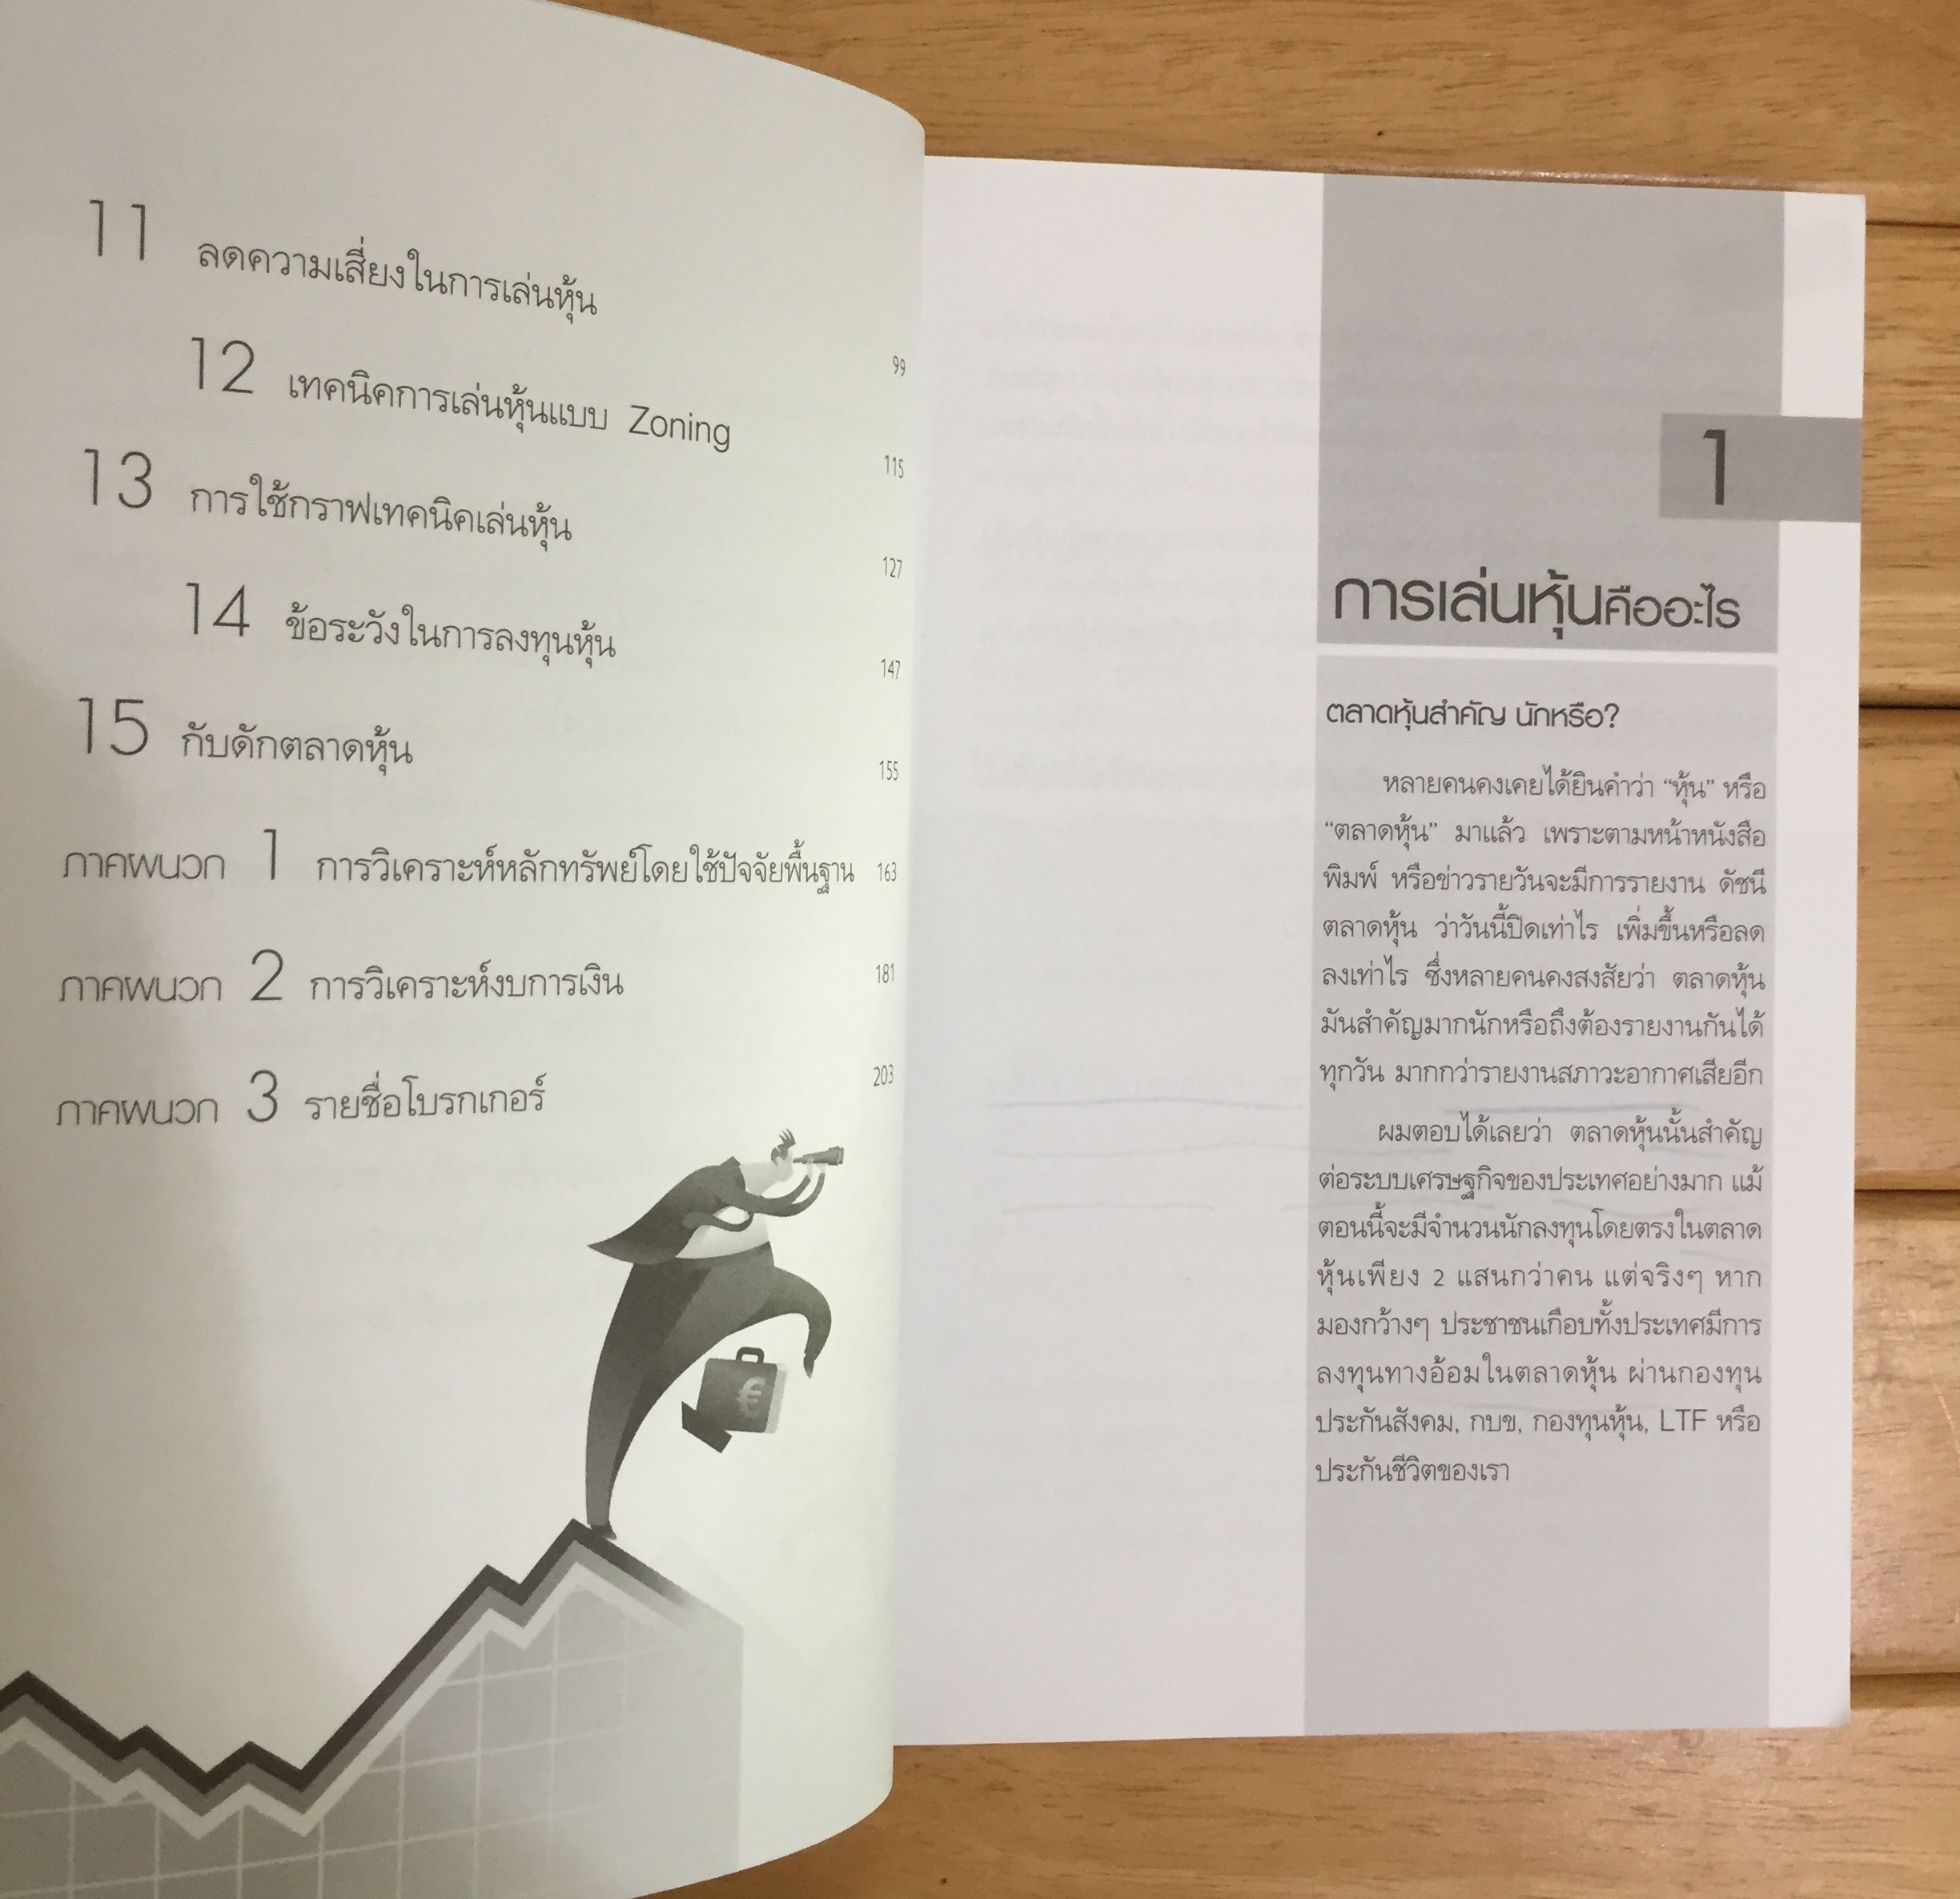 11 ลดความเสี่ยงในการเล่นหุ้น 99
12 เทคนิคการเล่นหุ้นแบบ Zoning 115
13 การใช้กราฟเทคนิคเล่นหุ้น 127
14 ข้อระวังในการลงทุนหุ้น 147
15 กับดักตลาดหุ้น 155
ภาคผนวก 1 การวิเคราะห์หลักทรัพย์โดยใช้ปัจจัยพื้นฐาน 163
ภาคผนวก 2 การวิเคราะห์งบการเงิน 181
ภาคผนวก 3 รายชื่อโบรกเกอร์ 203
€
1
การเล่นหุ้นคืออะไร
ตลาดหุ้นสำคัญ นักหรือ?
หลายคนคงเคยได้ยินคำว่า “หุ้น” หรือ
“ตลาดหุ้น” มาแล้ว เพราะตามหน้าหนังสือ
พิมพ์ หรือข่าวรายวันจะมีการรายงาน ดัชนี
ตลาดหุ้น ว่าวันนี้ปิดเท่าไร เพิ่มขึ้นหรือลด
ลงเท่าไร ซึ่งหลายคนคงสงสัยว่า ตลาดหุ้น
มันสำคัญมากนักหรือถึงต้องรายงานกันได้
ทุกวัน มากกว่ารายงานสภาวะอากาศเสียอีก
ผมตอบได้เลยว่า ตลาดหุ้นนั้นสำคัญ
ต่อระบบเศรษฐกิจของประเทศอย่างมาก แม้
ตอนนี้จะมีจำนวนนักลงทุนโดยตรงในตลาด
หุ้นเพียง 2 แสนกว่าคน แต่จริงๆ หาก
มองกว้างๆ ประชาชนเกือบทั้งประเทศมีการ
ลงทุนทางอ้อมในตลาดหุ้น ผ่านกองทุน
ประกันสังคม, กบข, กองทุนหุ้น, LTF หรือ
ประกันชีวิตของเรา